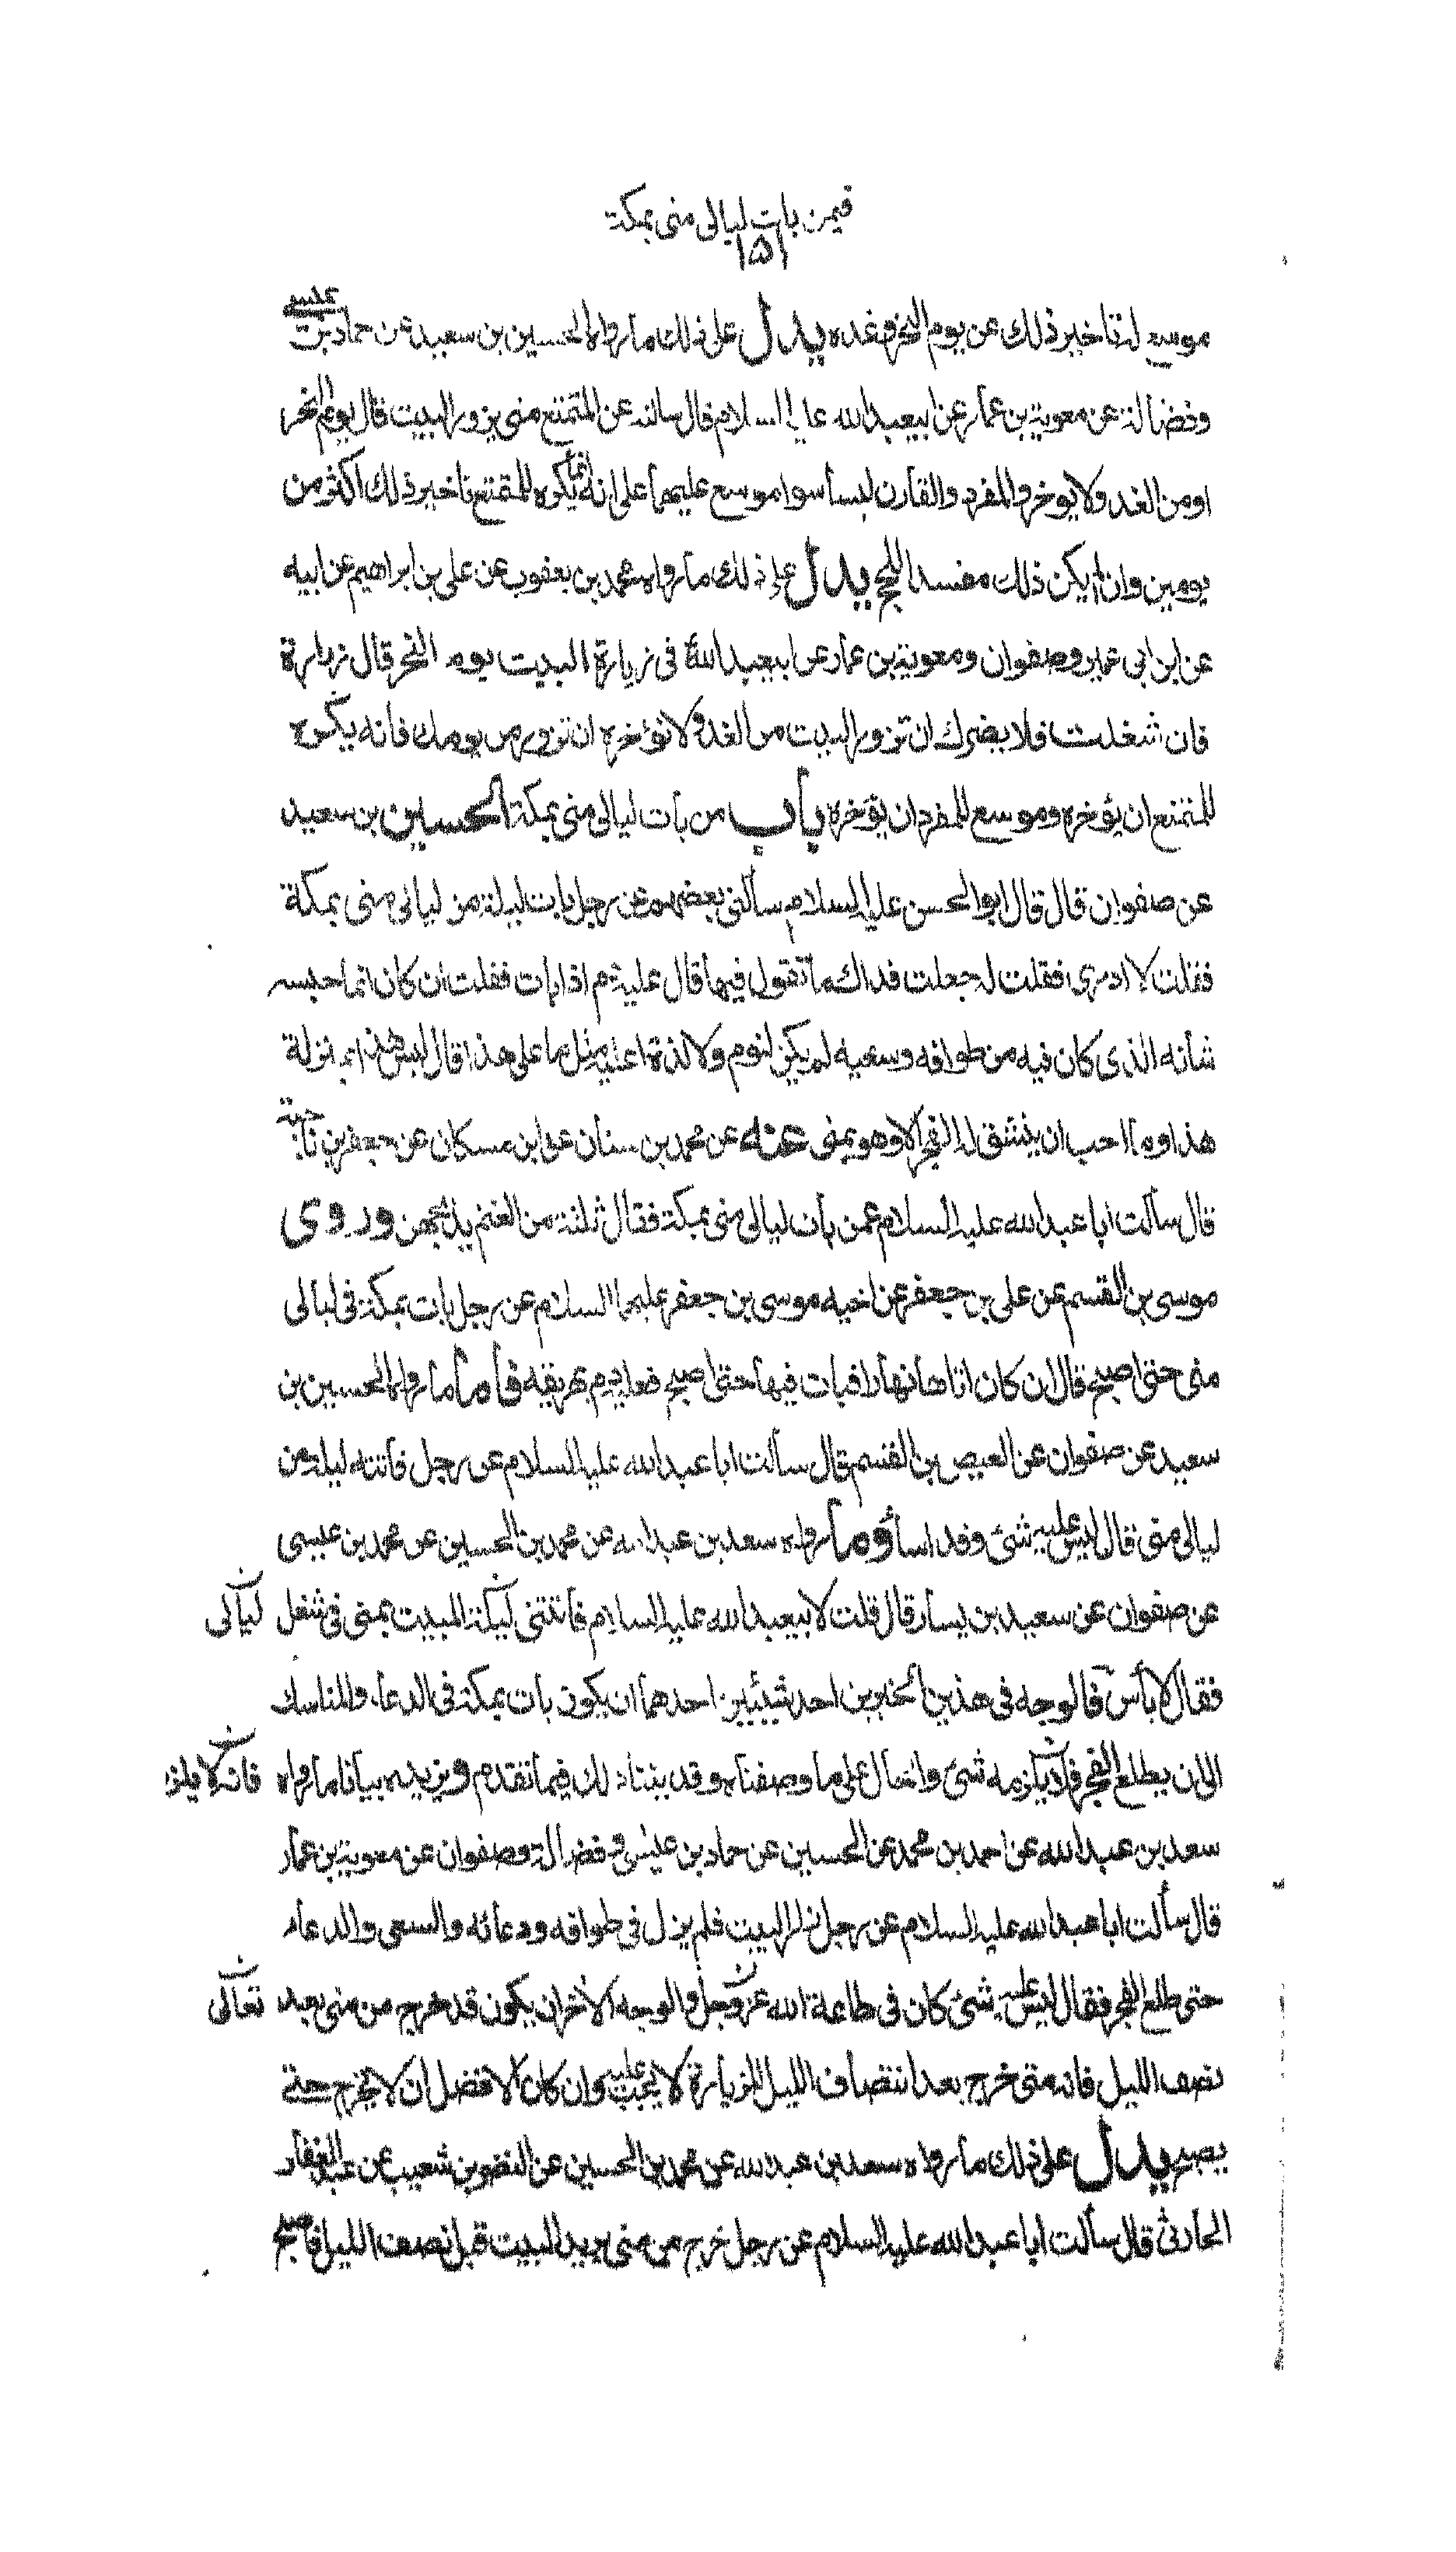 فيمن بات ليالى منى بمكة
١٥١
موسع له تاخير ذلك عن يوم النحر وغده يدل على ذلك ما رواه الحسين بن سعيد عن حماد بن عيسى
وفضالة عن معوية بن عمار عن ابيعبدالله عليه السلام قال سالته عن المتمتع متى يزور البيت قال يوم النحر
او من الغد ولا يوخر والمفرد والقارن ليسا سواء موسع عليهما على انه انما يكره للمتمتع تاخير ذلك اكثر من
يومين وان لم يكن ذلك مفسدا للحج يدل على ذلك ما رواه محمد بن يعقوب عن على بن ابراهيم عن ابيه
عن ابن ابى عمير وصفوان ومعوية بن عمار عن ابيعبدالله فى زيارة البيت يوم النحر قال زرارة
فان شغلت فلا يضرك ان تزور البيت من الغد ولا تؤخره ان تزور من يومك فانه يكره
للمتمتع ان يؤخره وموسع للمفرد ان يؤخره باب من بات ليالى منى بمكة الحسين بن سعيد
عن صفوان قال قال ابو الحسن عليه السلام سألنى بعضهم عن رجل بات ليلة من ليالى منى بمكة
فقلت لا ادرى فقلت له جعلت فداك ما تقول فيها قال عليه دم اذا بات فقلت ان كان انما حبسه
شأنه الذى كان فيه من طوافه وسعيه لم يكن لنوم ولا لذة اعليه مثل ما على هذا قال ليس هذا بمنزلة
هذا وما احب ان ينشق له الفجر الا وهو بمنى عنه عن محمد بن سنان عن ابن مسكان عن جعفر بن ناجية
قال سألت ابا عبدالله عليه السلام عمن بات ليالى منى بمكة فقال ثلثة من الغنم يذبحهن وروى
موسى بن القسم عن على بن جعفر عن اخيه موسى بن جعفر عليهما السلام عن رجل بات بمكة فى ليالى
منى حتى اصبح قال ان كان اتاها نهارا فبات فيها حتى اصبح فعليه دم يهريقه فأما ما رواه الحسين بن
سعيد عن صفوان عن العيص بن القسم قال سألت ابا عبدالله عليه السلام عن رجل فاتته ليلة من
ليالى منى قال ليس عليه شئ وقد اسأ وما رواه سعد بن عبدالله عن محمد بن الحسين عن محمد بن عيسى
عن صفوان عن سعيد بن يسار قال قلت لابيعبدالله عليه السلام فاتتنى ليلة المبيت بمنى فى شغل ليالى
فقال لا بأس فالوجه فى هذين الخبرين احد شيئين احدهما ان يكون بات بمكة فى الدعاء والمناسك
الى ان يطلع الفجر فلا يلزمه شئ والحال على ما وصفناه وقد بينا ذلك فيما تقدم ويزيده بيانا ما رواه فانه لا يلزمه
سعد بن عبدالله عن احمد بن محمد عن الحسين عن حماد بن عيسى وفضالة وصفوان عن معوية بن عمار
قال سألت ابا عبدالله عليه السلام عن رجل زار البيت فلم يزل فى طوافه ودعائه والسعى والدعاء
حتى طلع الفجر فقال ليس عليه شئ كان فى طاعة الله عز وجل والوجه الاخر ان يكون قد خرج من منى بعد تعالى
نصف الليل فانه متى خرج بعد انتصاف الليل للزيارة لا يجب عليه وان كان الافضل ان لا يخرج حتى
يصبح يدل على ذلك ما رواه سعد بن عبدالله عن محمد بن الحسين عن النضر بن شعيب عن عبد الغفار
الحارثى قال سألت ابا عبدالله عليه السلام عن رجل خرج من منى يريد البيت قبل نصف الليل فاصبح